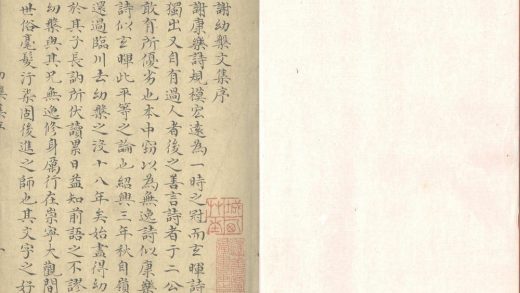 謝幼槃文集序
謝康樂詩規模宏遠為一時之冠而玄暉詩
獨出又自有過人者後之善言詩者于二公
敢有所優劣也本中竊以為無逸詩似康樂
詩似玄暉此平等之論也紹興三年秋自嶺
還過臨川去幼槃之沒十八年矣始盡得幼
於其子長訥所伏讀累日益知前語之不謬
幼槃與其兄無逸修身厲行在崇寧大觀間
世俗毫髮汙染固後進之師也其文字之好